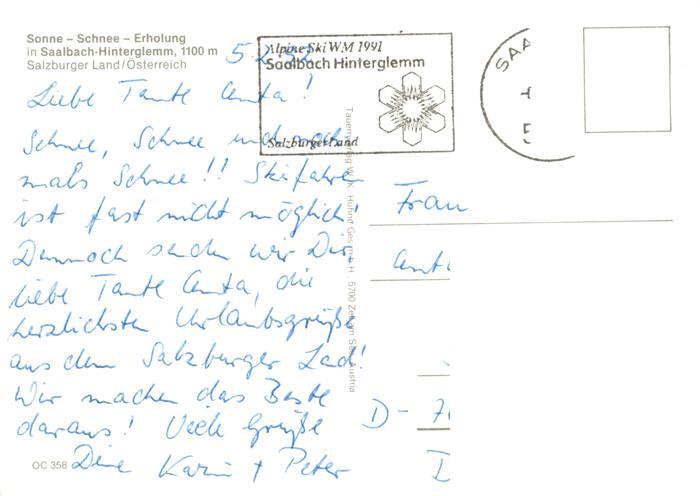 Sonne – Schnee – Erholung
in Saalbach-Hinterglemm, 1100 m
Salzburger Land/Österreich
Alpine Ski WM 1991
Saalbach Hinterglemm
Salzburger Land
SAA
Liebe Tante Anta!
Schnee, Schnee und noch
mals Schnee!! Skifahren
ist fast nicht möglich!
Dennoch senden wir Dir,
liebe Tante Anta, die
herzlichsten Urlaubsgrüße
aus dem Salzburger Lad!
Wir machen das Beste
daraus! Viele Grüße
Deine Karin + Peter
OC 358
Frau
Anta
D-